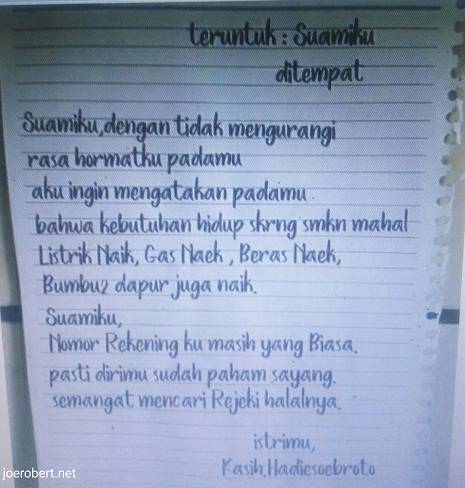 teruntuk : Suamiku
ditempat
Suamiku, dengan tidak mengurangi
rasa hormatku padamu
aku ingin mengatakan padamu
bahwa kebutuhan hidup skrng smkn mahal
Listrik Naik, Gas Naek, Beras Naek,
Bumbu2 dapur juga naik.
Suamiku,
Nomor Rekening ku masih yang Biasa.
pasti dirimu sudah paham sayang.
semangat mencari Rejeki halalnya.
istrimu,
Kasih.Hadiesoebroto
joerobert.net